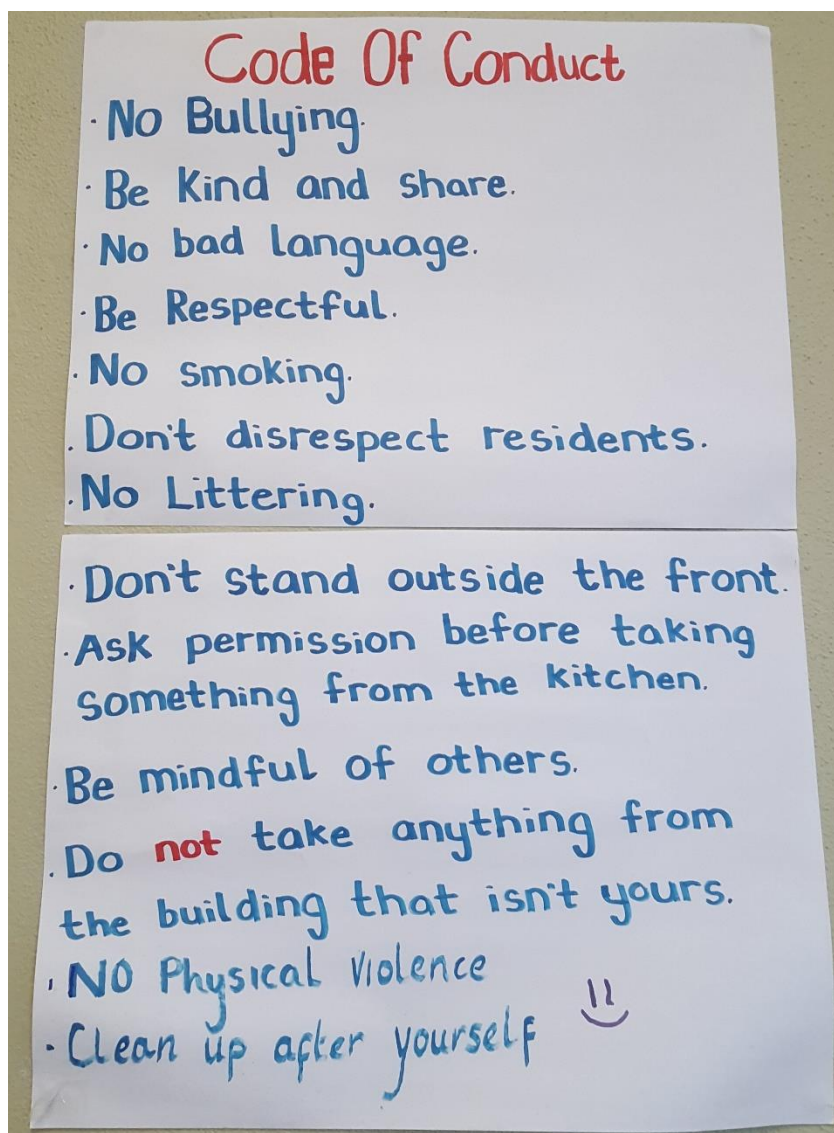 Code Of Conduct
· No Bullying.
· Be Kind and share.
· No bad language.
· Be Respectful.
· No smoking.
· Don't disrespect residents.
· No Littering.
· Don't stand outside the front.
· Ask permission before taking
something from the kitchen.
· Be mindful of others.
· Do not take anything from
the building that isn't yours.
· NO Physical Violence
· Clean up after yourself